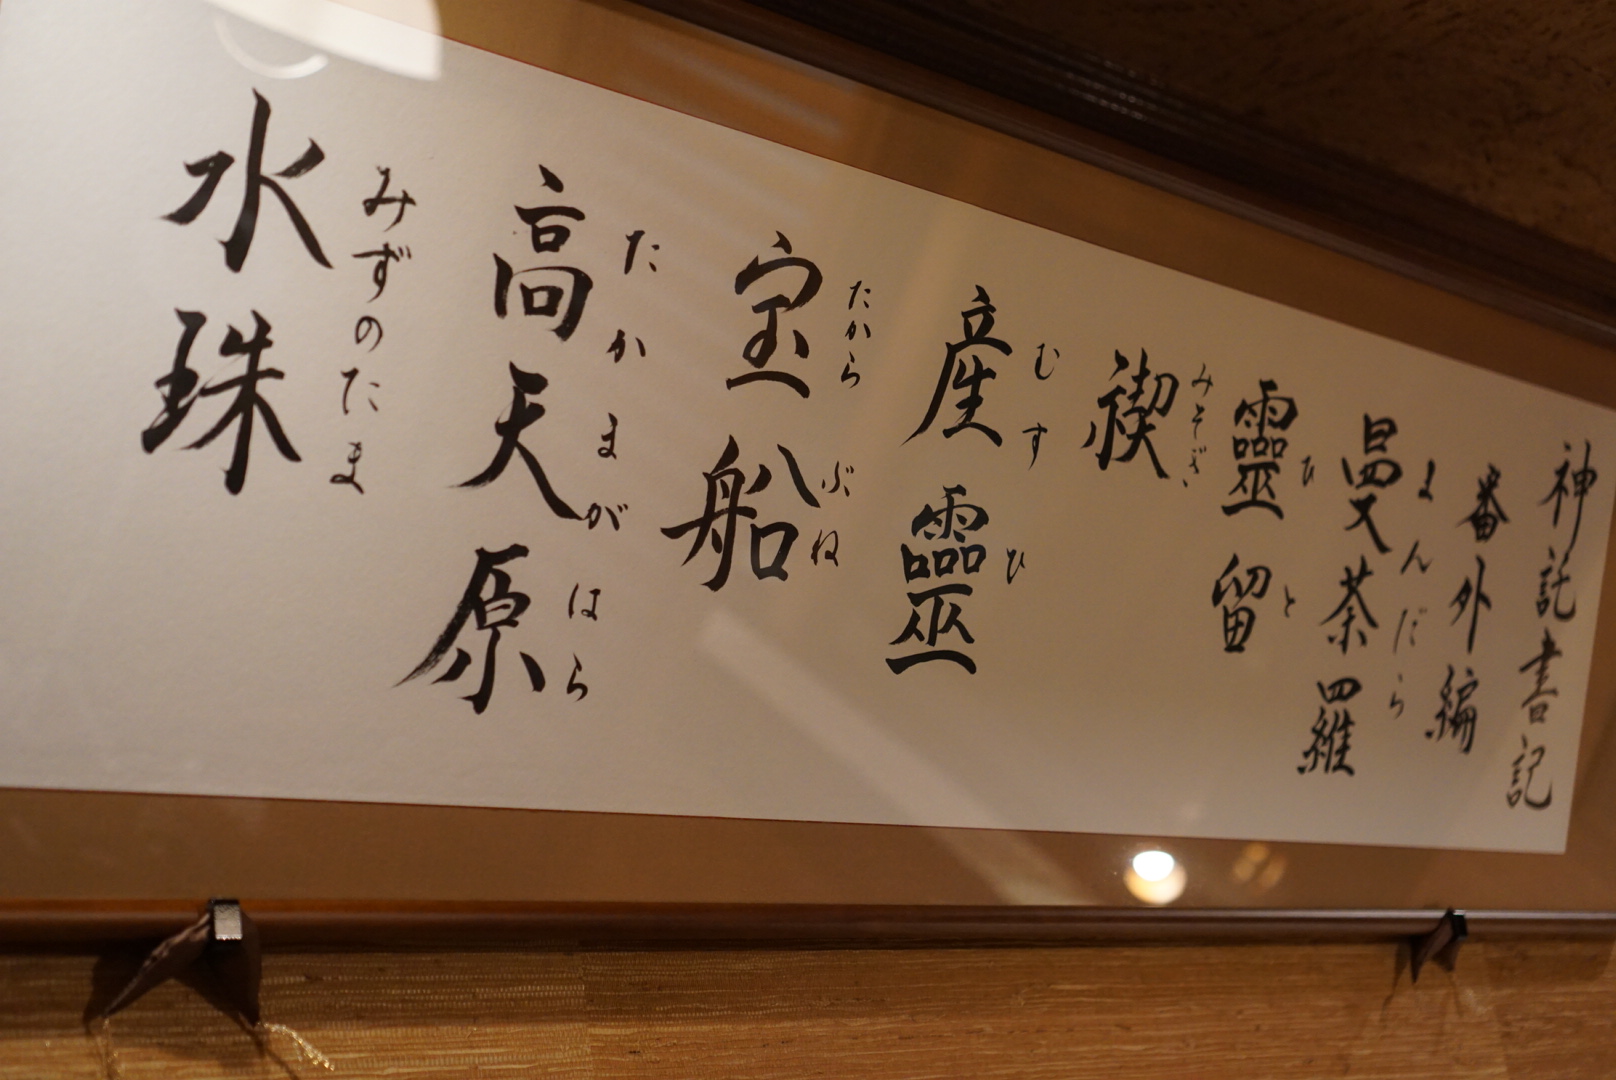 神託書記
番外編
曼荼羅
まんだら
靈留
ひと
禊
みそぎ
産靈
むすひ
宝船
たからぶね
高天原
たかまがはら
水珠
みずのたま